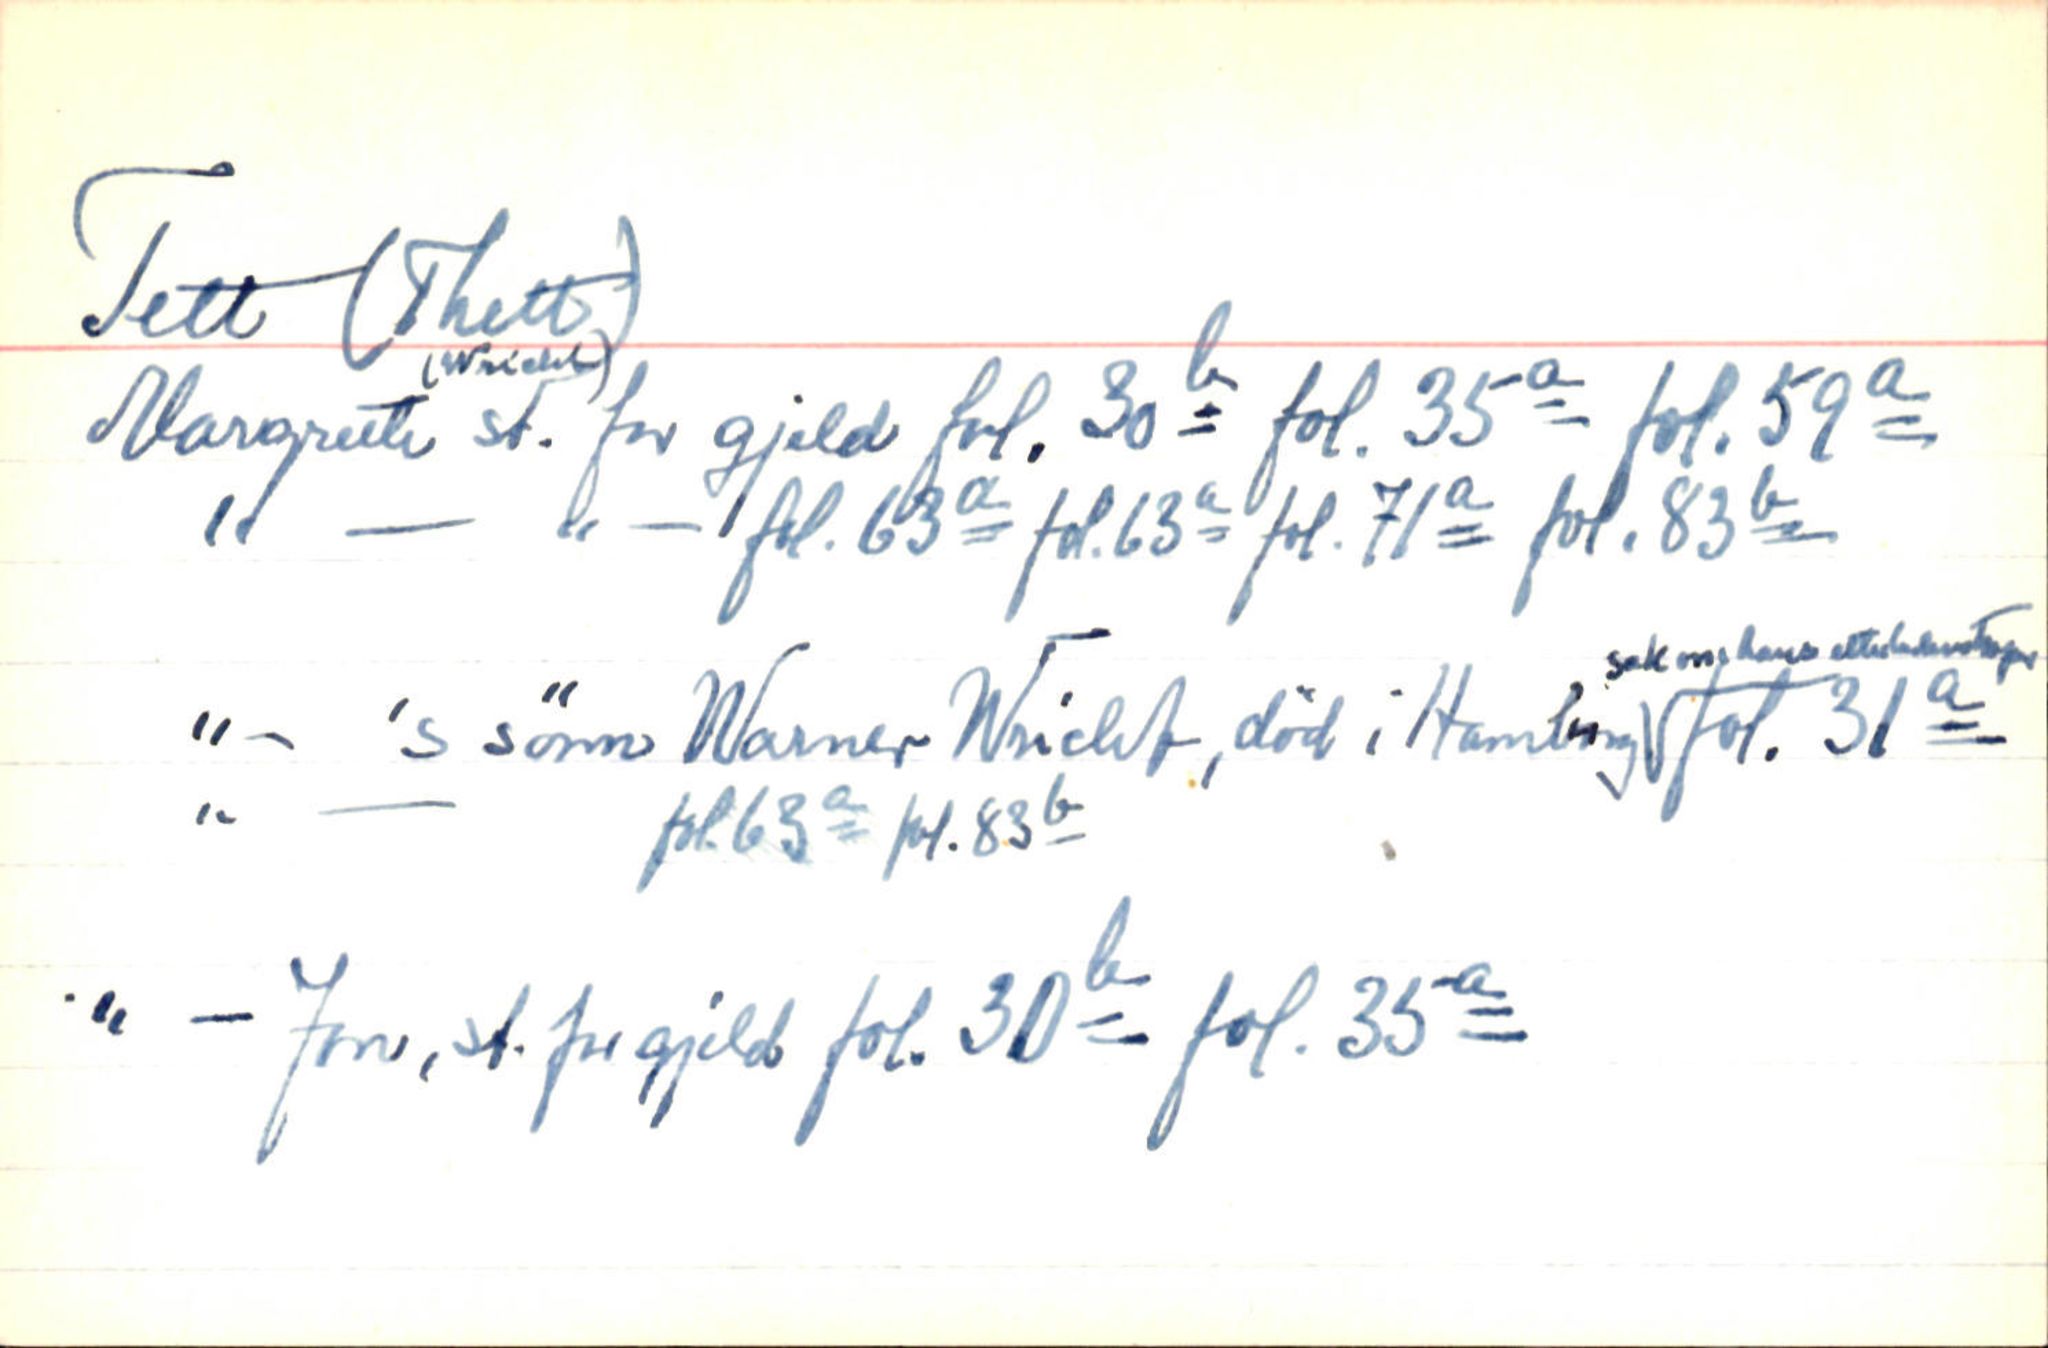 Tett (Thett)
(Wricht)
Margrete st. for gjeld fol. 30b fol. 35a fol. 59a
" — " — fol. 63a fol. 63a fol. 71a fol. 83b
sak om hans etterladenskaper
" — 's sönn Warner Wricht, död i Hamburg √ fol. 31a
" — fol. 63a fol. 83b
" — Jon, st. for gjeld fol. 30b fol. 35a